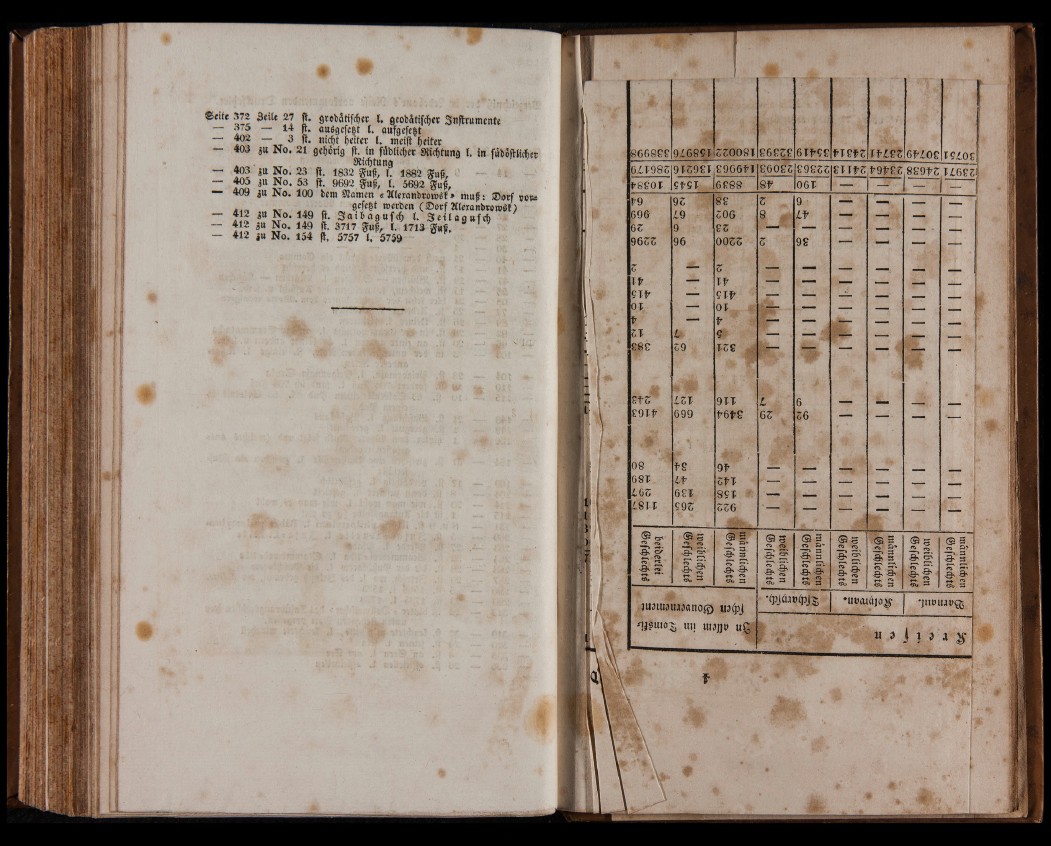 Seite 372 Zeile 27 st. geodätischer l. geodätischer Instrumente
— 375 — 14 st. ausgesetzt l. aufgesetzt
— 402 — 3 st. nicht heiter l. meist heiter
— 403 zu No. 21 gehörig st. in südlicher Richtung l. in südöstlicher
Richtung
— 403 zu No. 23 st. 1832 Fuß, l. 1882 Fuß,
— 405 zu No. 53 st. 9692 Fuß, l. 5692 Fuß,
— 409 zu No. 100 dem Namen «Alexandrowsk» muß: Dorf vor=
gesetzt werden (Dorf Alexandrowsk)
— 412 zu No. 149 st. Jaibagusch l. Jeilagusch
— 412 zu No. 149 st. 3717 Fuß, l. 1713 Fuß,
— 412 zu No. 154 st. 5757 l. 5759
Kreisen
In allem im Tomski=
schen Gouvernement
Barnaul.
Kolywan.
Tscharysch.
männlichen Geschlechts
weiblichen Geschlechts
männlichen Geschlechts
weiblichen Geschlechts
männlichen Geschlechts
weiblichen Geschlechts
männlichen Geschlechts
weiblichen Geschlechts
beiderlei Geschlechts
— — — — — — 922 265 1187
— — — — — — 158 139 297
— — — — — — 142 47 189
— — — — — — 46 34 80
— — — — 92 29 3494 669 4163
— — — — 9 7 116 127 243
— — — — — — 321 62 383
— — — — — — 5 7 12
— — — — — — 4 — 4
— — — — — — 10 — 10
— — — — — — 415 — 415
— — — — — — 41 — 41
— — — — — — 2 — 2
— — — — 36 2 2200 96 2296
— — — — — — 23 6 29
— — — — 47 8 602 67 669
— — — — 6 2 38 26 64
— — — — 190 48 8839 1545 10384